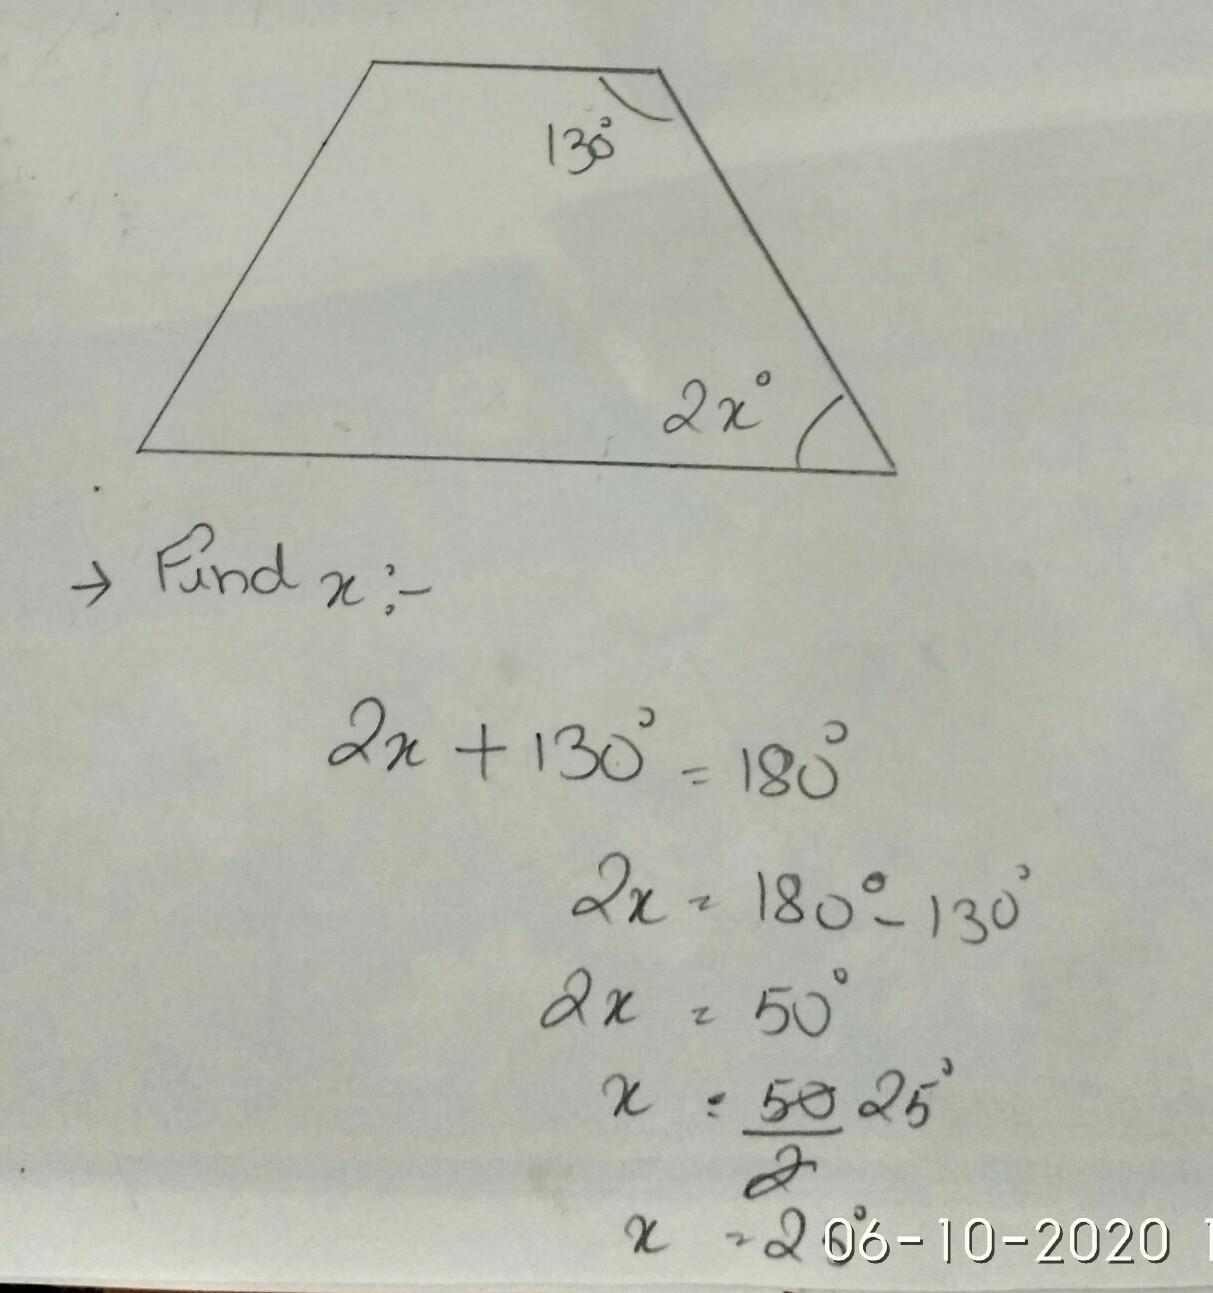 130°
2x°
→ Find x :-
2x + 130° = 180°
2x = 180° - 130°
2x = 50°
x = 50/2 25°
x = 2
06-10-2020 1